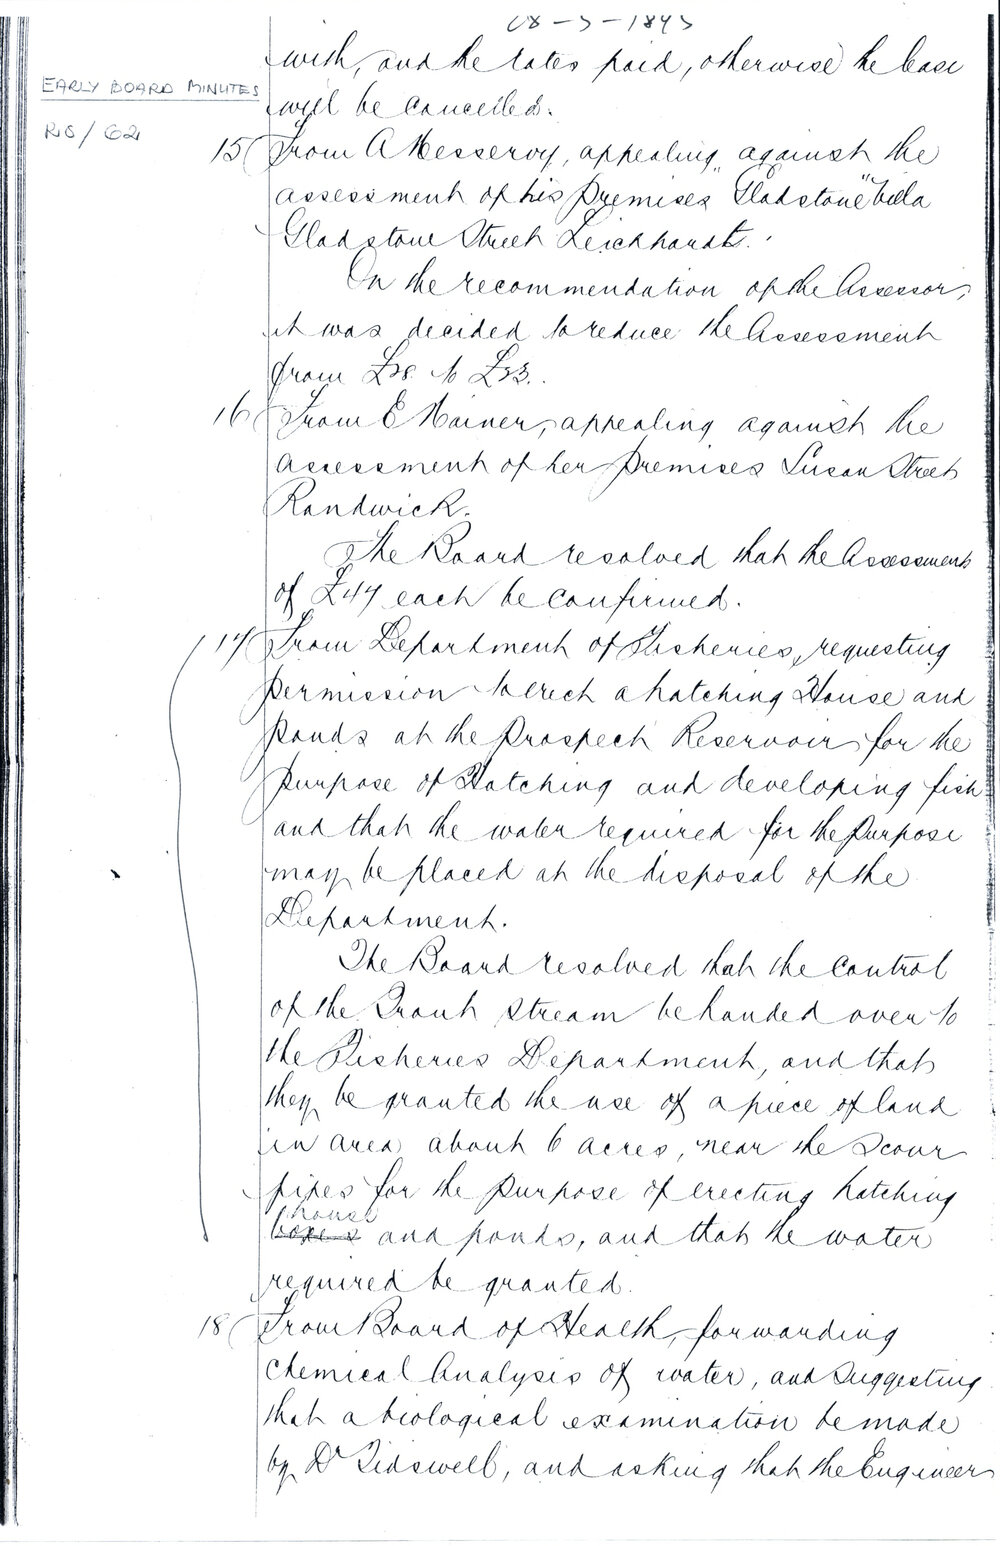 with, and the rates paid, otherwise the lease
EARLY BOARD MINUTES
will be cancelled.
RS/62
15 From A Messervy, appealing against the
assessment of his Premises "Gladstone" Villa
Gladstone Street Leichhardt.
On the recommendation of the Assessor,
it was decided to reduce the Assessment
from £28. to £23.
16 From E appealing against the
assessment of her premises Susan Street
Randwick.
The Board resolved that the Assessment
of £44 each be confirmed.
17 From Department of Fisheries, requesting
permission to erect a hatching House and
Ponds at the Prospect Reservoir for the
purpose of Hatching and developing fish
and that the water required for the Purpose
may be placed at the disposal of the
Department.
The Board resolved that the control
of the Trout stream be handed over to
the Fisheries Department, and that
they be granted the use of a piece of land
in area about 6 acres, near the Scour
pipes for the purpose of erecting hatching
house
boxes and ponds, and that the water
required be granted.
18 From Board of Health, forwarding
Chemical Analysis of water, and suggesting
that a biological examination be made
by Dr Tidswell, and asking that the Engineer